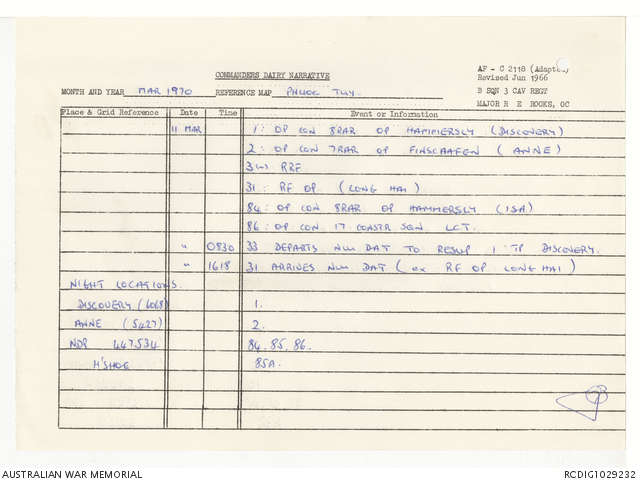 COMMANDERS DAIRY NARRATIVE
AF - C 2118 (Adapted)
Revised Jun 1966
MONTH AND YEAR MAR 1970 REFERENCE MAP PHUOC TUY
B SQN 3 CAV REGT
MAJOR R E ROOKS, OC
Place & Grid Reference Date Time Event or Information
11 MAR 1: OP CON 8RAR OP HAMMERSLY (DISCOVERY)
2: OP CON 7RAR OP FINSCAAFEN (ANNE)
3(-) RRF
31: RF OP (LONG HAI)
84: OP CON 8RAR OP HAMMERSLY (ISA)
86: OP CON 17 CONSTR SQN LCT.
" 0830 33 DEPARTS NUI DAT TO RESUP 1 TP DISCOVERY.
" 1618 31 ARRIVES NUI DAT (ex RF OP LONG HAI)
NIGHT LOCATIONS.
DISCOVERY (6068) 1.
ANNE (5427) 2.
NDP 447534 84, 85, 86.
H'SHOE 85A.
AUSTRALIAN WAR MEMORIAL RCDIG1029232